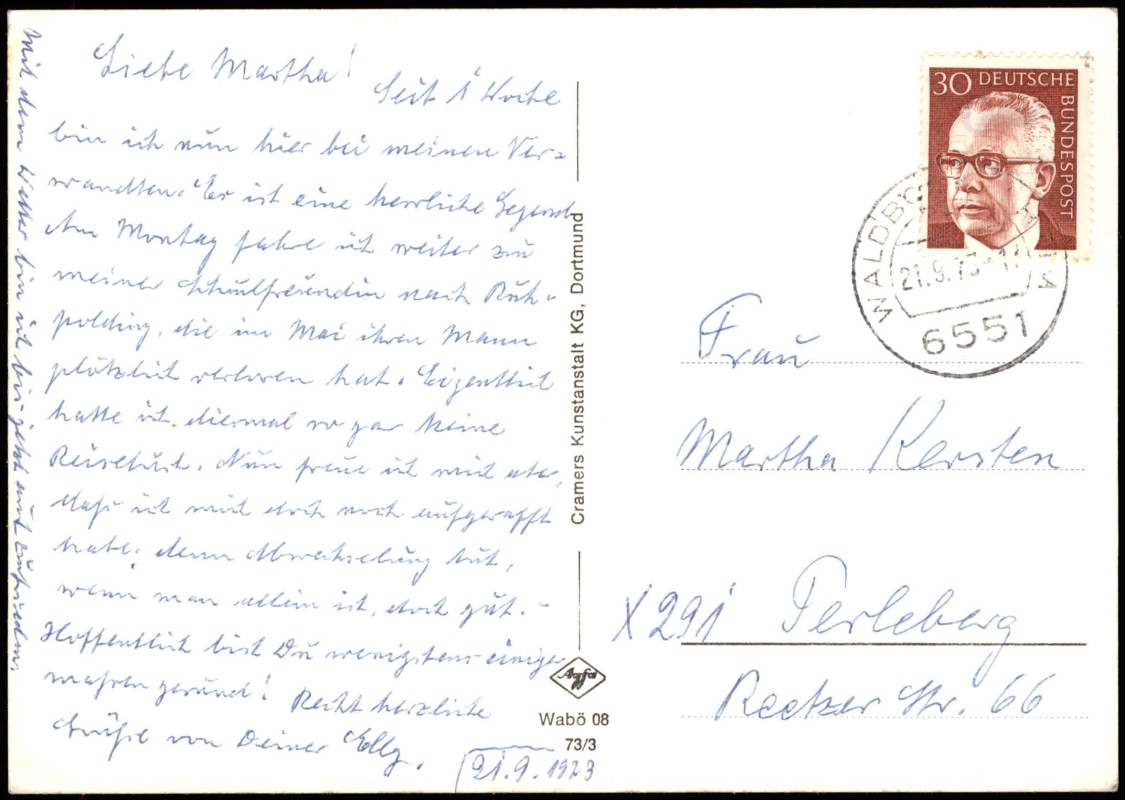 Liebe Martha!
Seit 1 Woche
bin ich nun hier bei meinen Ver-
wandten. Es ist eine herrliche Gegend
Am Montag fahre ich weiter zu
meiner Schulfreundin nach Ruh-
polding, die im Mai ihren Mann
plötzlich verloren hat. Eigentlich
hatte ich diesmal so gar keine
Reiselust. Nun freue ich mich aber,
dass ich mich doch noch aufgerafft
habe, denn Abwechselung tut,
wenn man allein ist, doch gut. -
Hoffentlich bist Du wenigstens einiger
massen gesund! Recht herzliche
Grüße von Deiner Elly.
21.9.1973
Mit dem Wetter bin ich bis jetzt auch zufrieden
Cramers Kunstanstalt KG, Dortmund
Agfa
Wabö 08
73/3
30 DEUTSCHE
BUNDESPOST
WALDBÖ
21.9.73-1
6551
Frau
Martha Kersten
X291 Perleberg
Reetzer Str. 66